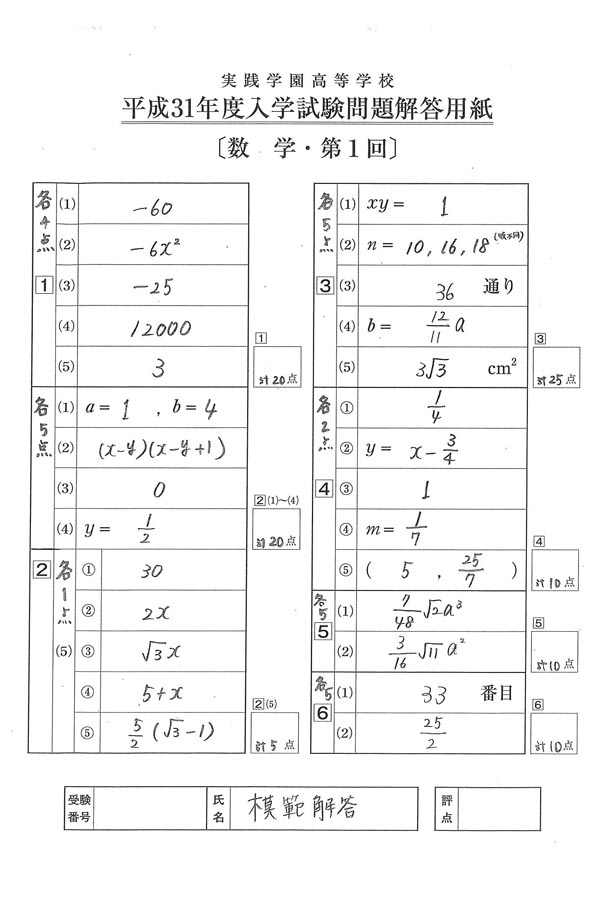 実践学園高等学校
平成31年度入学試験問題解答用紙
〔数 学・第1回〕
各4点
1
(1) -60
(2) -6x²
(3) -25
(4) 12000
(5) 3
1
計20点
各5点
(1) a = 1 , b = 4
(2) (x-y)(x-y+1)
(3) 0
(4) y = 1/2
2(1)~(4)
計20点
2
各1点
(5) ① 30
② 2x
③ √3x
④ 5+x
⑤ 5/2(√3-1)
2(5)
計5点
各5点
3
(1) xy = 1
(2) n = 10, 16, 18 (順不同)
(3) 36 通り
(4) b = 12/11 a
(5) 3√3 cm²
3
計25点
各2点
4
① 1/4
② y = x - 3/4
③ 1
④ m = 1/7
⑤ ( 5 , 25/7 )
4
計10点
各5
5
(1) 7/48 √2a³
(2) 3/16 √11 a²
5
計10点
各5
6
(1) 33 番目
(2) 25/2
6
計10点
受験番号
氏名 模範解答
評点